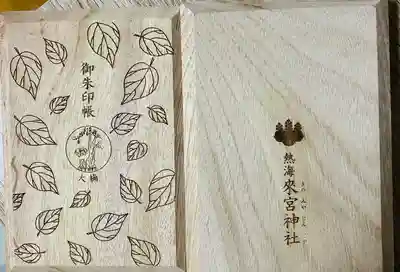 御朱印帳
大楠
熱海 來宮神社
きのみやじんじゃ